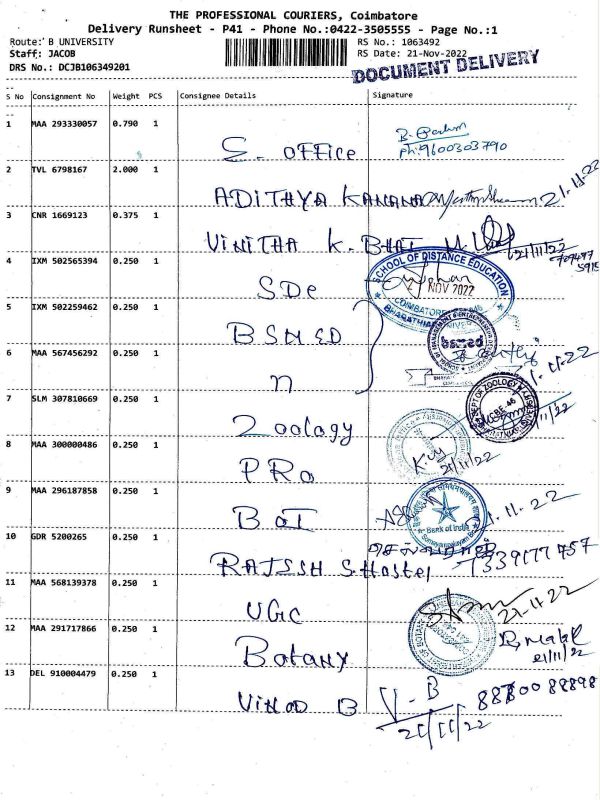 THE PROFESSIONAL COURIERS, Coimbatore
Delivery Runsheet - P41 - Phone No.:0422-3505555 - Page No.:1
Route: B UNIVERSITY RS No.: 1063492
Staff: JACOB RS Date: 21-Nov-2022
DRS No.: DCJB106349201
DOCUMENT DELIVERY
S No Consignment No Weight PCS Consignee Details Signature
1 MAA 293330057 0.790 1
S. OFFICE Ph: 9600303790
2 TVL 6798167 2.000 1
ADITHYA KANANA 21.11.22
3 CNR 1669123 0.375 1
VINITHA K. BHAT 21/11/22
4 IXM 502565394 0.250 1
SDE
SCHOOL OF DISTANCE EDUCATION
2 NOV 2022
5 IXM 502259462 0.250 1
BSMED
bsmed
6 MAA 567456292 0.250 1
n
7 SLM 307810669 0.250 1
Zoology
DEPT OF ZOOLOGY
8 MAA 300000486 0.250 1
PRO 21/11/22
9 MAA 296187858 0.250 1
BOI
Bank of India
10 GDR 5200265 0.250 1
RAJESH S.Hostel
11 MAA 568139378 0.250 1
UGC 21.11.22
12 MAA 291717866 0.250 1
Botany 21/11/22
13 DEL 910004479 0.250 1
VINOD B V-B
21/11/22